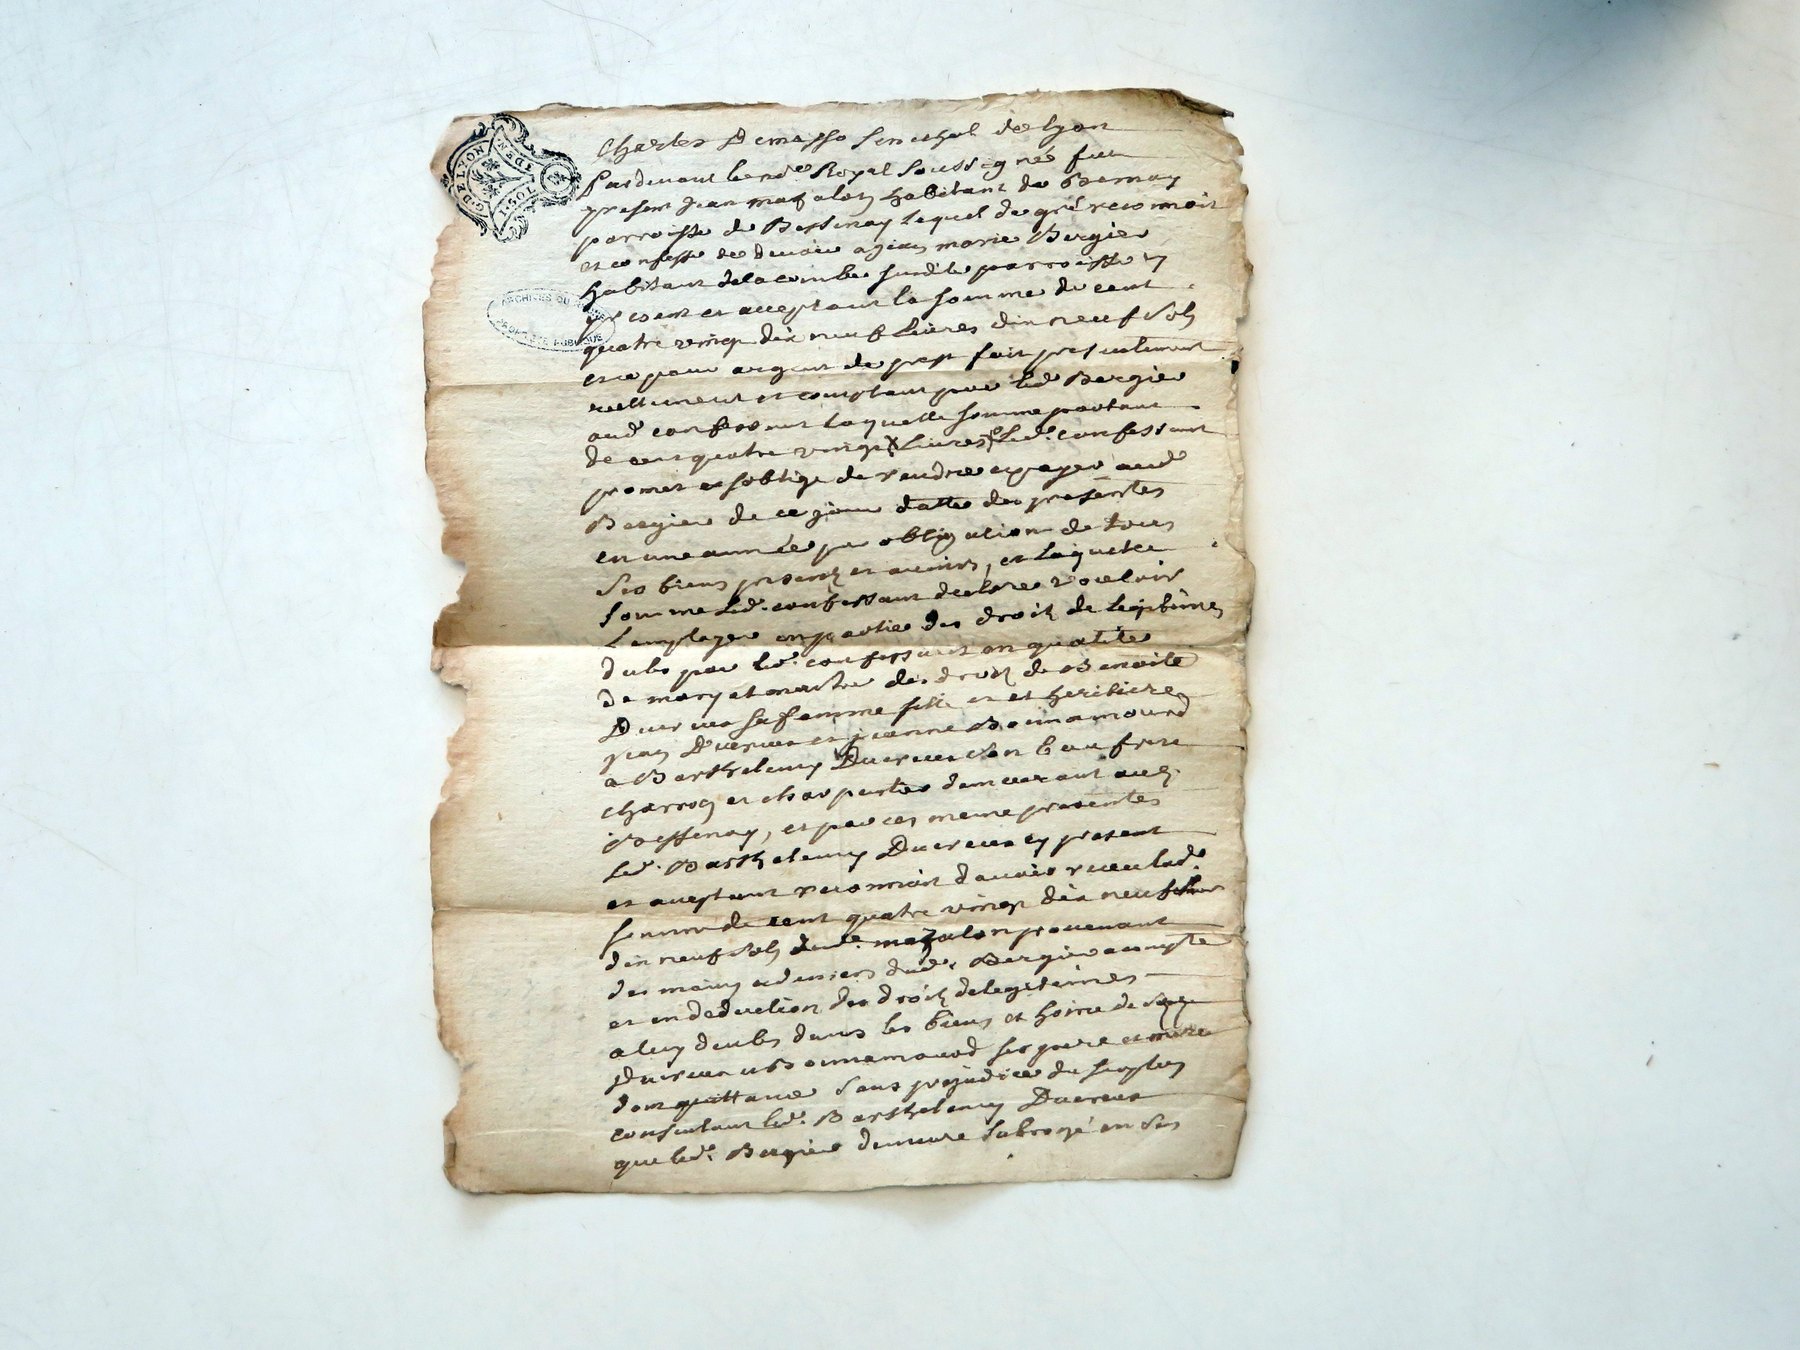 G. DE LYON
1. SOL 10 DEN
ARCHIVES DU
PUBLIQUE
Charles Demasso Senechal de Lyon
Pardevant le no.re Royal Soussigné fut
present Jean mazalon habitant de
parroisse de Bessenay lequel de gré reconnoit
et confesse de devoir a jean marie Bergier
habitant de la combe susdite parroisse
present et acceptant la somme de cent
quatre vingt dix neuf Livres dix neuf sols
et ce pour argent de prest fait presentement
reellement et comptant par led. Bergier
aud. confessant laquelle somme partant
de cent quatre vingt Livres Led. confessant
promet et s'oblige de rendre et payer aud.
Bergier de ce jour datte des presentes
en une année par obligation de tous
ses biens presents et avenirs, et laquelle
somme Led. confessant declare vouloir
l'employer en partie des droits de legitimes
dubs par led. confessant en qualité
de mary et maitre des droits de Benoite
Ducreux sa femme fille et heritiere
jean Ducreux et jeanne Bonnamourd
a Barthelemy Ducreux son beau frere
charron et charpentier demeurant aud.
Bessenay, et par ces meme presentes
Led. Barthelemy Ducreux present
et acceptant reconnoit d'avoir receu lad.
somme de cent quatre vingt dix neuf Livres
dix neuf sols dud. mazalon provenant
des mains et deniers dud. Bergier a compte
et en deduction des droits de legitimes
a luy deubs dans les biens et hoirie de
Ducreux et Bonnamourd ses pere et mere
dont quittance sans prejudice du surplus
consentant led. Barthelemy Ducreux
que led. Bergier demeure subrogé en ses